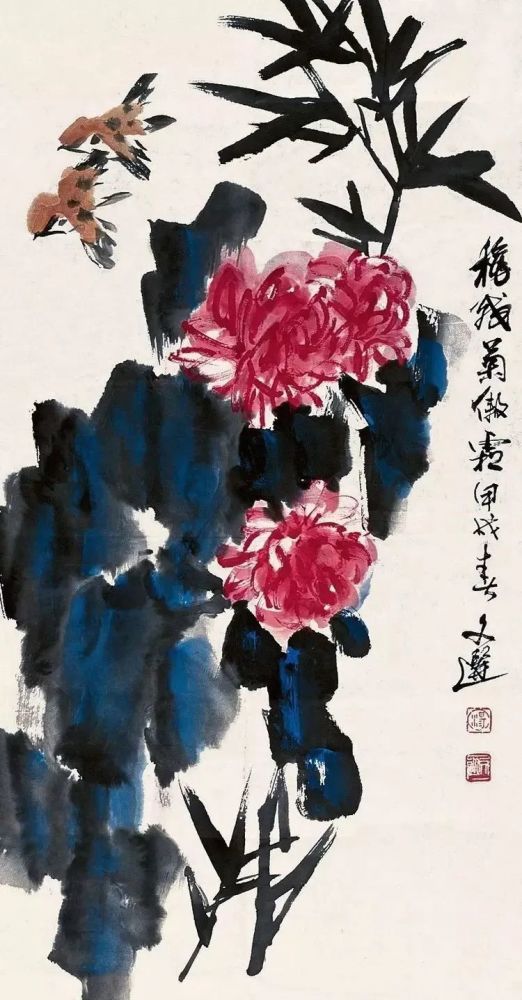 残菊傲霜甲戌春文選